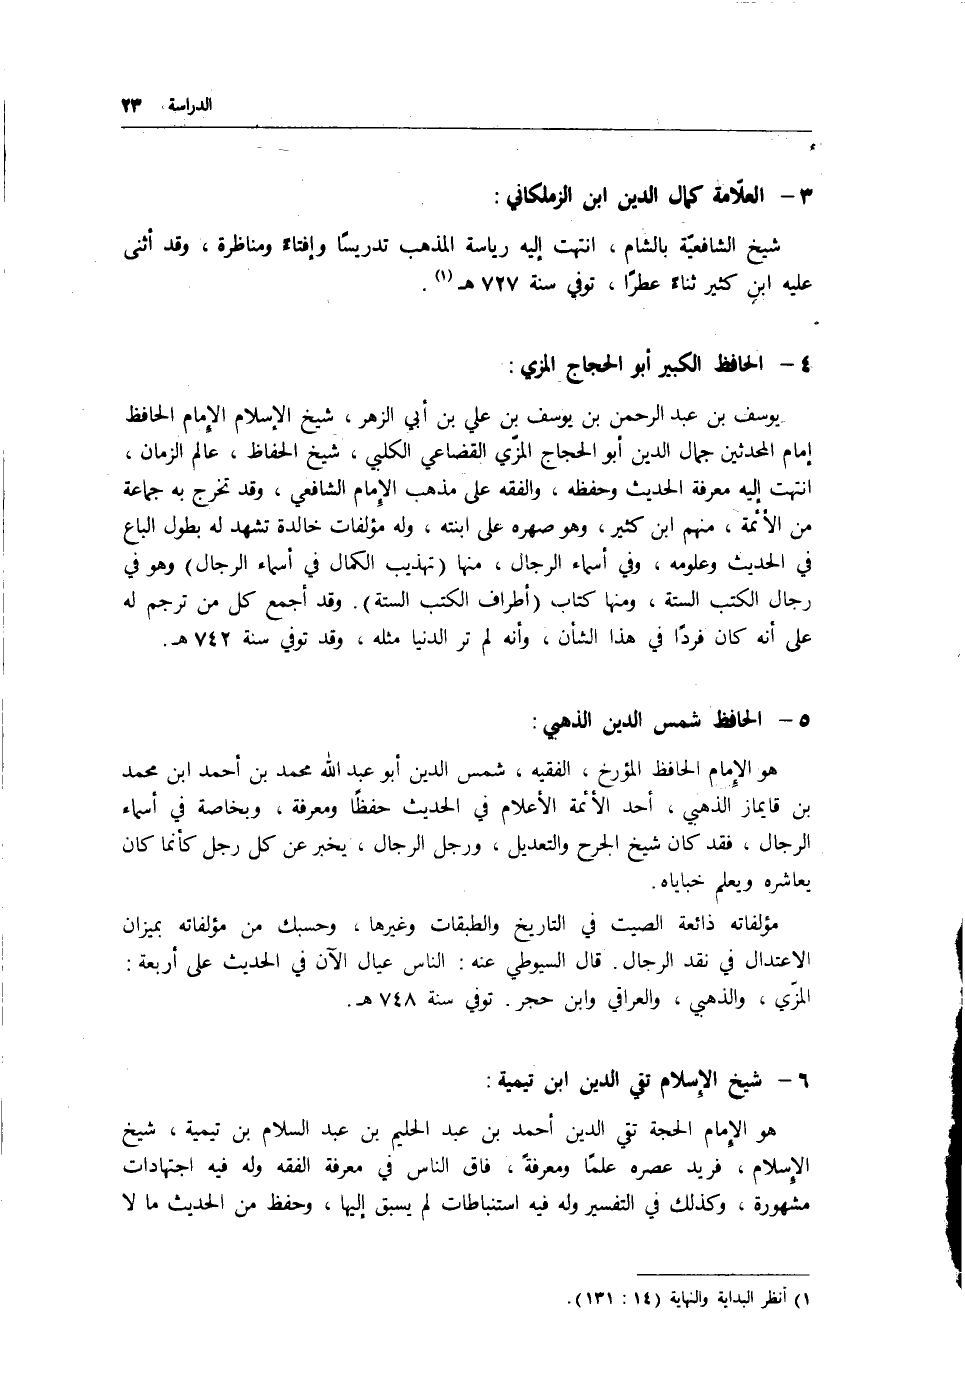 الدراسة ٢٣
٣ - العلّامة كمال الدين ابن الزملكاني :
شيخ الشافعيّة بالشام ، انتهت إليه رياسة المذهب تدريسًا وإفتاءً ومناظرة ، وقد أثنى
عليه ابن كثير ثناءً عطرًا ، توفي سنة ٧٢٧ هـ(١) .
٤ - الحافظ الكبير أبو الحجاج المزي :
يوسف بن عبد الرحمن بن يوسف بن علي بن أبي الزهر ، شيخ الإسلام الإمام الحافظ
إمام المحدثين جمال الدين أبو الحجاج المزّي القضاعي الكلبي ، شيخ الحفاظ ، عالم الزمان ،
انتهت إليه معرفة الحديث وحفظه ، والفقه على مذهب الإمام الشافعي ، وقد تخرج به جماعة
من الأئمة ، منهم ابن كثير ، وهو صهره على ابنته ، وله مؤلفات خالدة تشهد له بطول الباع
في الحديث وعلومه ، وفي أسماء الرجال ، منها (تهذيب الكمال في أسماء الرجال) وهو في
رجال الكتب الستة ، ومنها كتاب (أطراف الكتب الستة). وقد أجمع كل من ترجم له
على أنه كان فردًا في هذا الشأن ، وأنه لم تر الدنيا مثله ، وقد توفي سنة ٧٤٢ هـ.
٥ - الحافظ شمس الدين الذهبي :
هو الإمام الحافظ المؤرخ ، الفقيه ، شمس الدين أبو عبد الله محمد بن أحمد ابن محمد
بن قايماز الذهبي ، أحد الأئمة الأعلام في الحديث حفظًا ومعرفة ، وبخاصة في أسماء
الرجال ، فقد كان شيخ الجرح والتعديل ، ورجل الرجال ، يخبر عن كل رجل كأنما كان
يعاشره ويعلم خباياه .
مؤلفاته ذائعة الصيت في التاريخ والطبقات وغيرها ، وحسبك من مؤلفاته بميزان
الاعتدال في نقد الرجال. قال السيوطي عنه : الناس عيال الآن في الحديث على أربعة :
المزّي ، والذهبي ، والعراقي وابن حجر. توفي سنة ٧٤٨ هـ.
٦ - شيخ الإسلام تقي الدين ابن تيمية :
هو الإمام الحجة تقي الدين أحمد بن عبد الحليم بن عبد السلام بن تيمية ، شيخ
الإسلام ، فريد عصره علمًا ومعرفةً ، فاق الناس في معرفة الفقه وله فيه اجتهادات
مشهورة ، وكذلك في التفسير وله فيه استنباطات لم يسبق إليها ، وحفظ من الحديث ما لا
١) أنظر البداية والنهاية (١٤ : ١٣١).